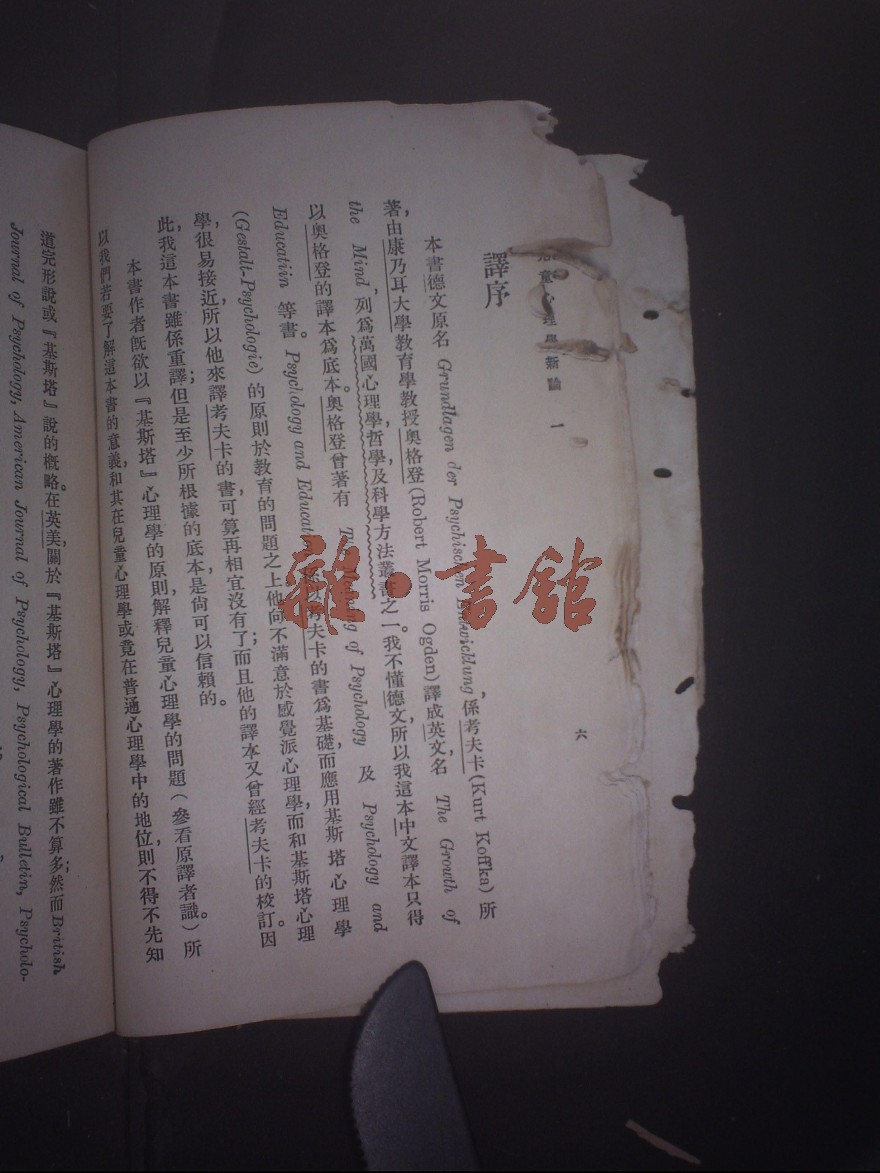 兒童心理學新論 一
六
譯序
本書德文原名 Grundlagen der Psychischen Entwicklung, 係考夫卡 (Kurt Koffka) 所
著,由康乃耳大學教育學教授奧格登 (Robert Morris Ogden) 譯成英文,名 The Growth of
the Mind, 列爲萬國心理學哲學及科學方法叢書之一。我不懂德文,所以我這本中文譯本只得
以奧格登的譯本爲底本。奧格登曾著有 of Psychology 及 Psychology and
Educatiin 等書。 Psychology and 以考夫卡的書爲基礎,而應用基斯塔心理學
(Gestalt-Psychologie) 的原則於教育的問題之上他尙不滿意於感覺派心理學,而和基斯塔心理
學,很易接近所以他來譯考夫卡的書,可算再相宜沒有了;而且他的譯本又曾經考夫卡的校訂。因
此,我這本書雖係重譯;但是至少所根據的底本,是尙可以信賴的。
本書作者旣欲以『基斯塔』心理學的原則,解釋兒童心理學的問題(參看原譯者識)。所
以我們若要了解這本書的意義,和其在兒童心理學或竟在普通心理學中的地位,則不得不先知
道完形說或『基斯塔』說的槪略。在英美,關於『基斯塔』心理學的著作雖不算多;然而 British
Journal of Psychology, American Journal of Psychology, Psychological Bulletin, Psycholo-
雜·書館